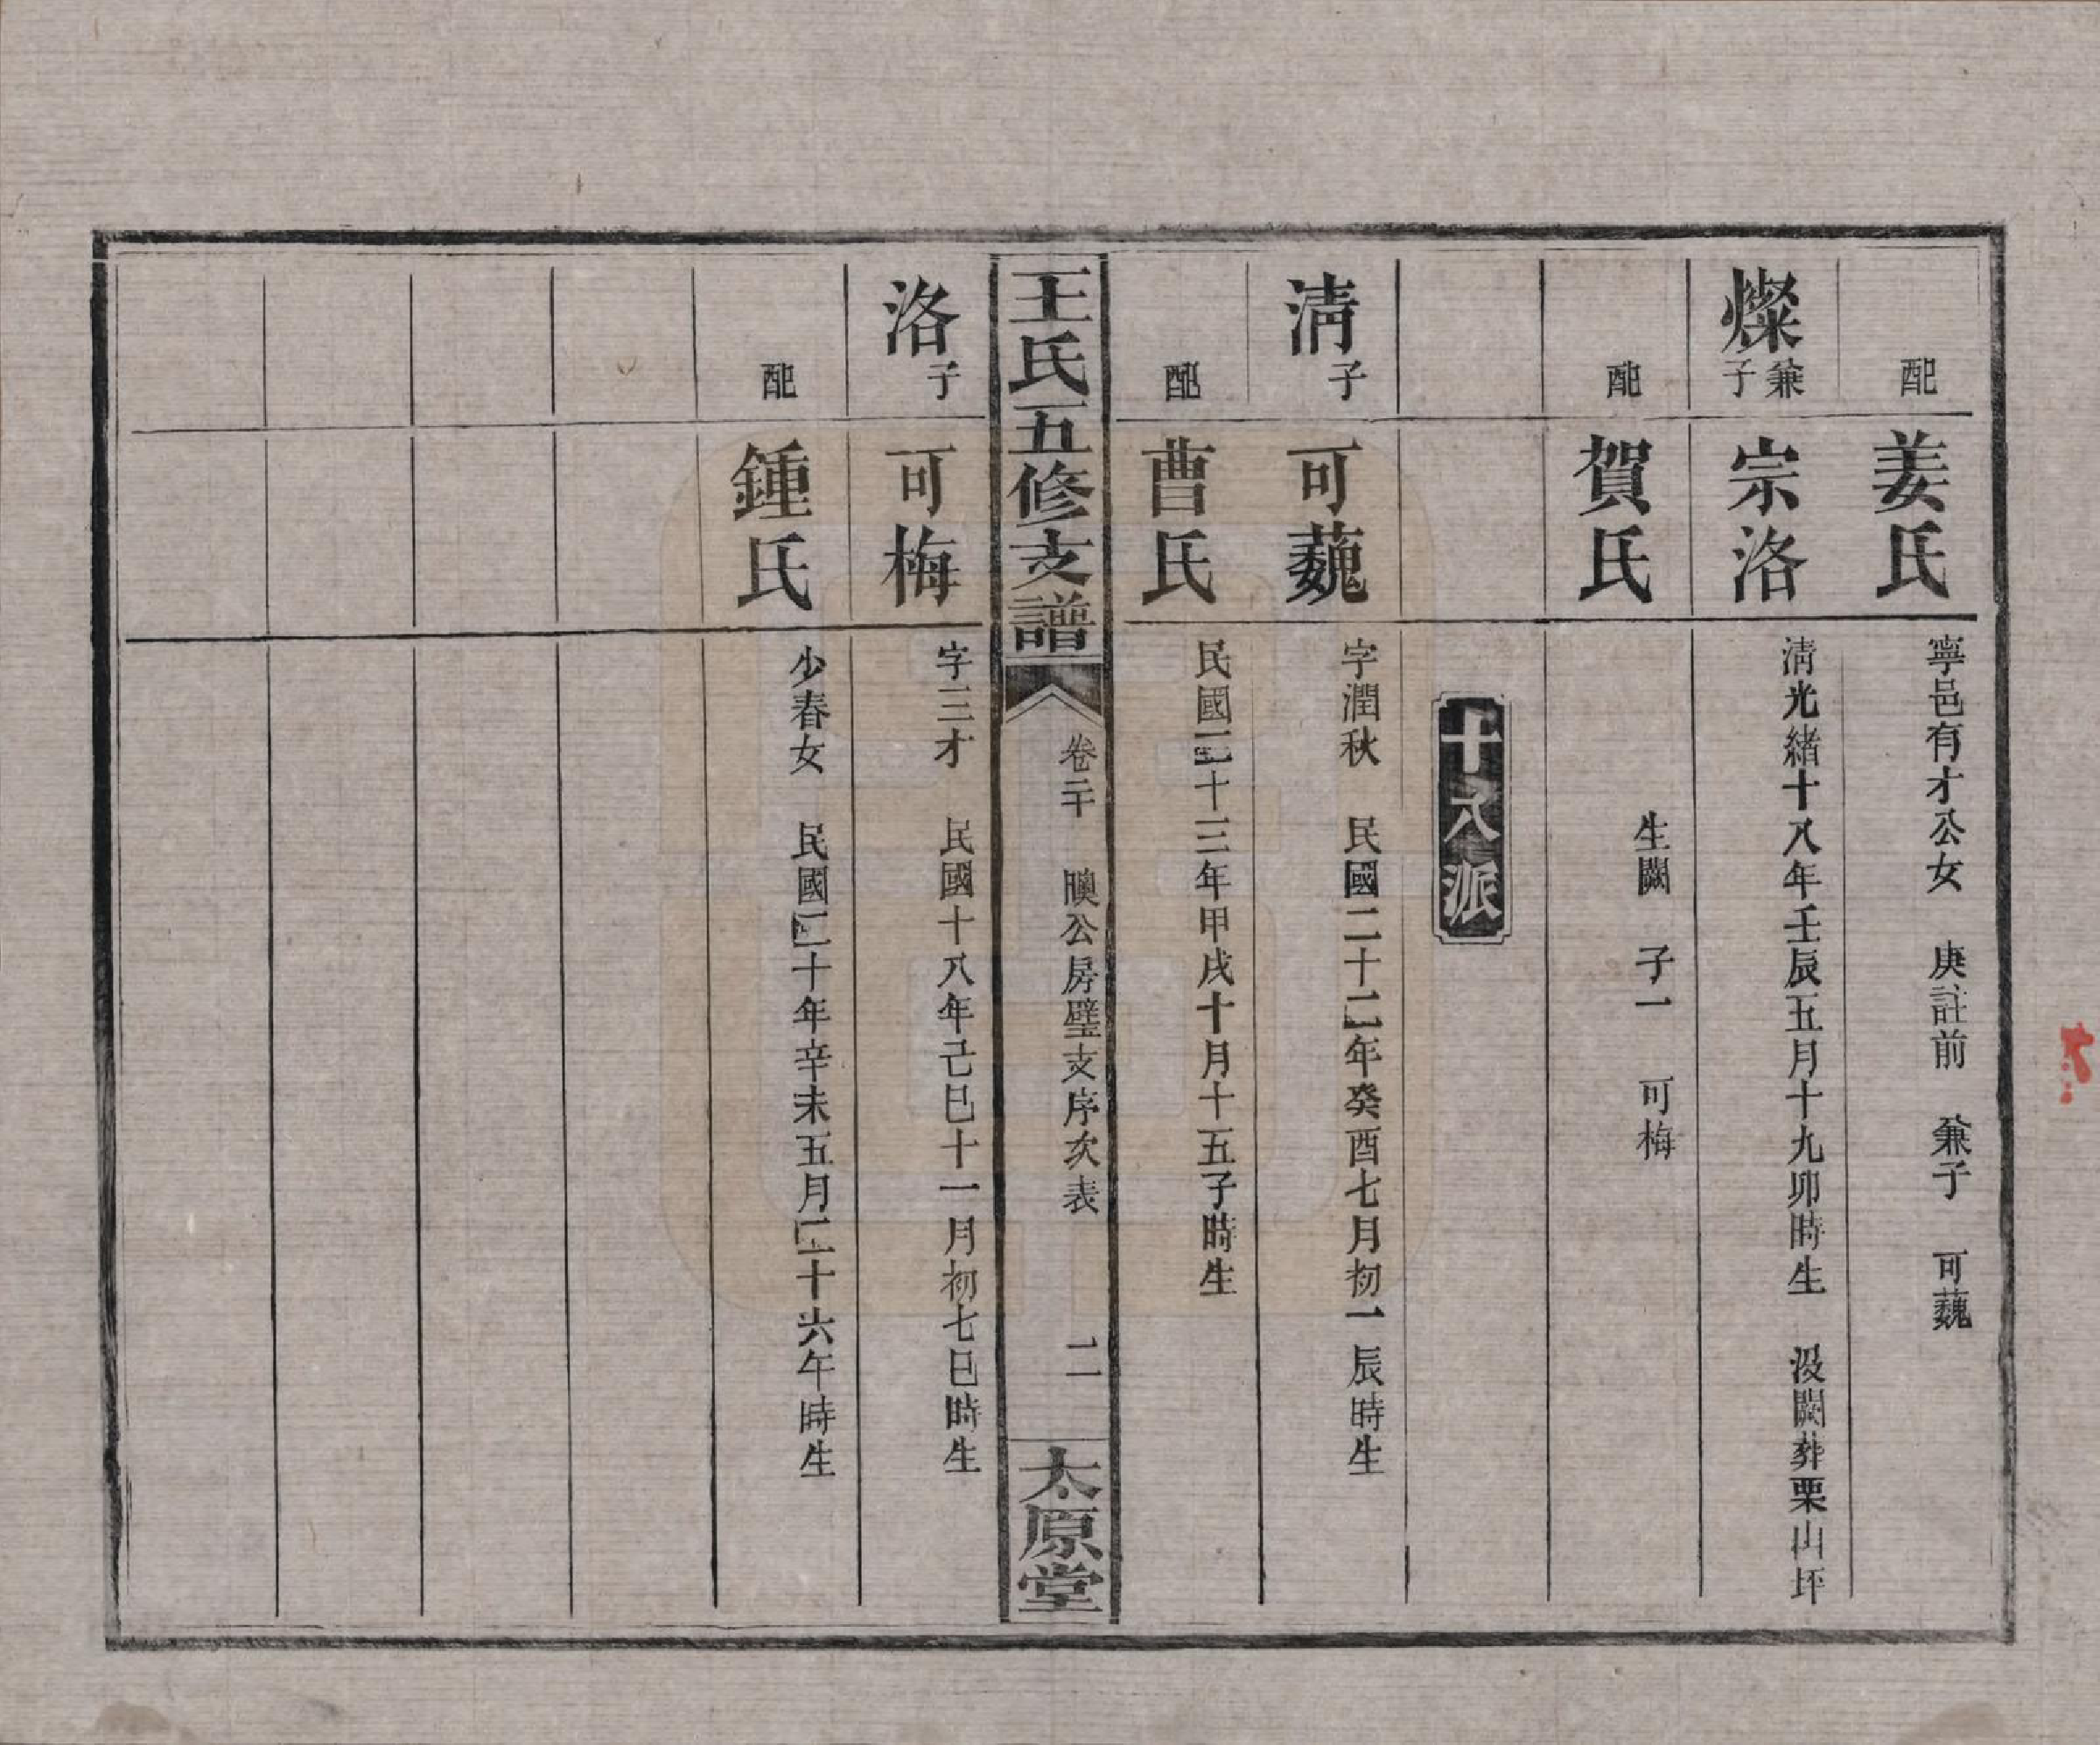 配 姜氏 寧邑有才公女 庚註前 兼子 可巍
燦兼子 宗洛 清光緒十八年壬辰五月十九卯時生 没闕葬栗山坪
配 賀氏 生闕 子一 可梅
十八派
清子 可巍 字潤秋 民國二十二年癸酉七月初一辰時生
配 曹氏 民國二十三年甲戌十月十五子時生
王氏五修支譜 卷二十 公房璧支序次表 二 太原堂
洛子 可梅 字三才 民國十八年己巳十一月初七巳時生
配 鍾氏 少春女 民國二十年辛未五月二十六午時生